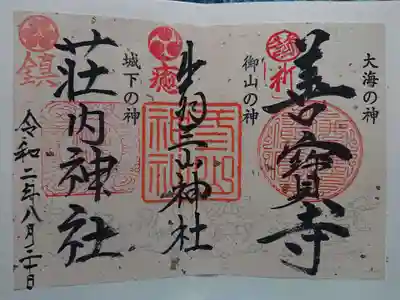 大海の神
善寳寺
祈
御山の神
出羽三山神社
癒
城下の神
荘内神社
鎮
令和二年八月二十日